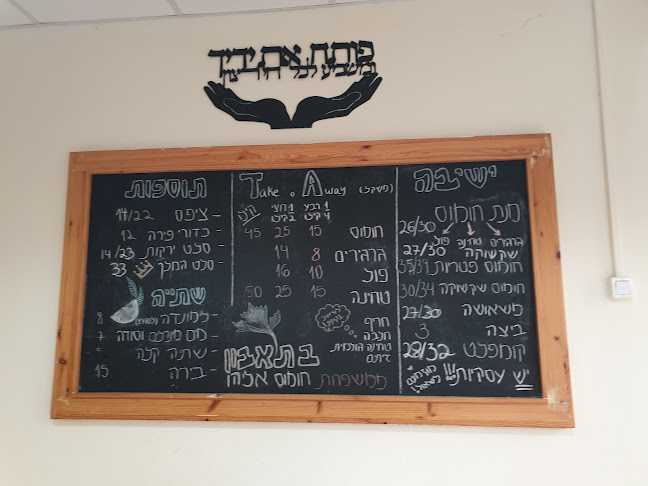 פותח את ידיך
ומשביע לכל חי רצון
ישיבה
מנת חומוס 26/30
גרגירים טחינה פול
שקשוקה 27/30
חומוס פטריות 35/39
חומוס שקשוקה 30/34
משאושה 27/30
ביצה 3
קומפלט 28/32
יש עסקיות!!!
Take Away (משקל)
1 רבע 1 חצי
חומוס 15 25 45
גרגרים 8 14
פול 10 16
טחינה 15 25 50
חריף
חמוצים
בתאבון
ממשפחת חומוס אליהו
תוספות
- ציפס 17/22
- כדורי פירה 12
- סלט ירקות 14/23
- סלט המלך 33
שתייה
- לימונדה 8
- מים מינרלים וסודה 7
- שתיה קלה
- בירה 15